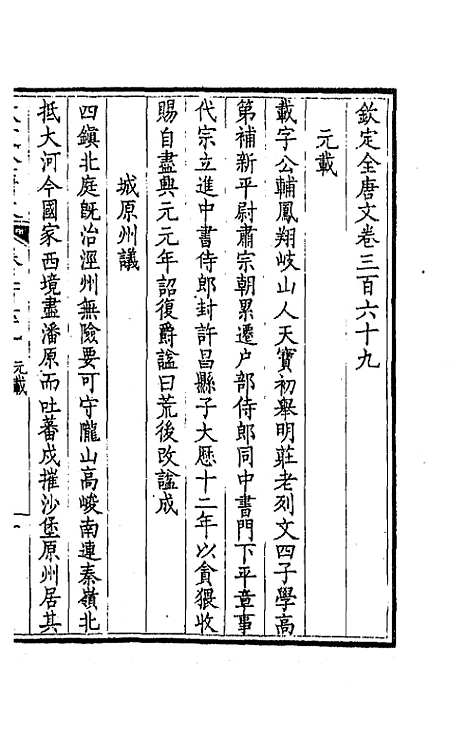 欽定全唐文卷三百六十九
元載
載字公輔鳳翔岐山人天寶初舉明莊老列文四子學高
第補新平尉肅宗朝累遷户部侍郎同中書門下平章事
代宗立進中書侍郎封許昌縣子大厯十二年以貪猥收
賜自盡興元元年詔復爵諡曰荒後改諡成
城原州議
四鎮北庭既治涇州無險要可守隴山高峻南連秦嶺北
抵大河今國家西境盡潘原而吐蕃戍摧沙堡原州居其
元載